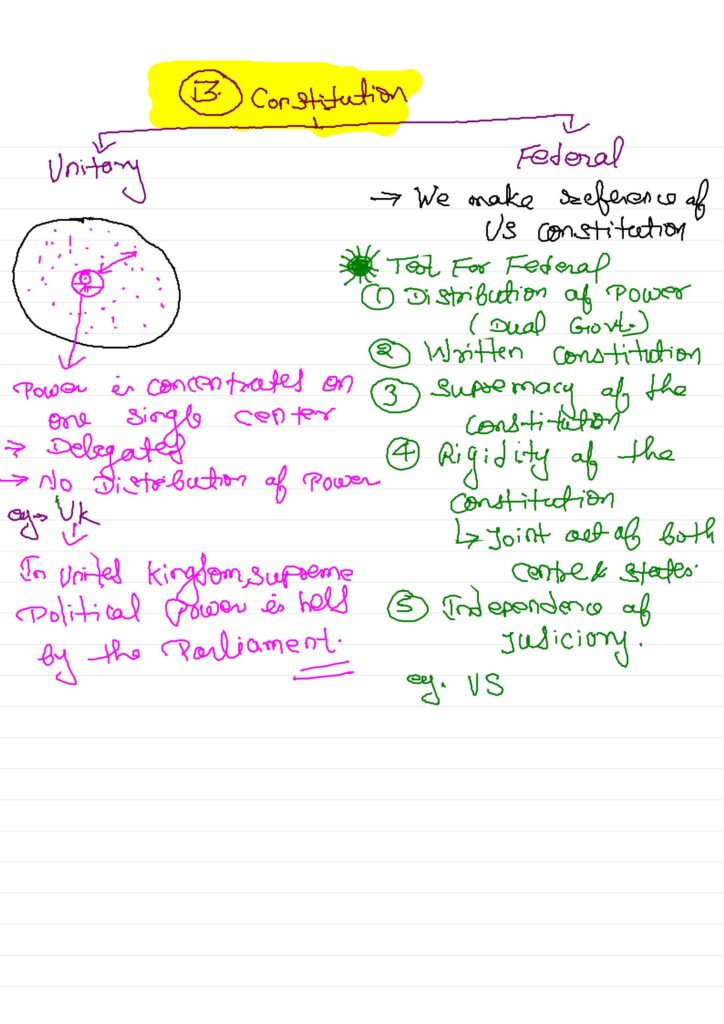 B. Constitution
Unitory
Power is concentrates on
one single center
→ Delegated
→ No Distribution of Power
eg→ Uk
In United kingdom, supreme
Political Power is held
by the Parliament.
Federal
→ We make reference of
US constitution
Test For Federal
① Distribution of Power
(Dual Govt.)
② Written Constitution
③ Supremacy of the
constitution
④ Rigidity of the
constitution
↳ Joint act of both
centre & states.
⑤ Independence of
Judiciary.
eg. US